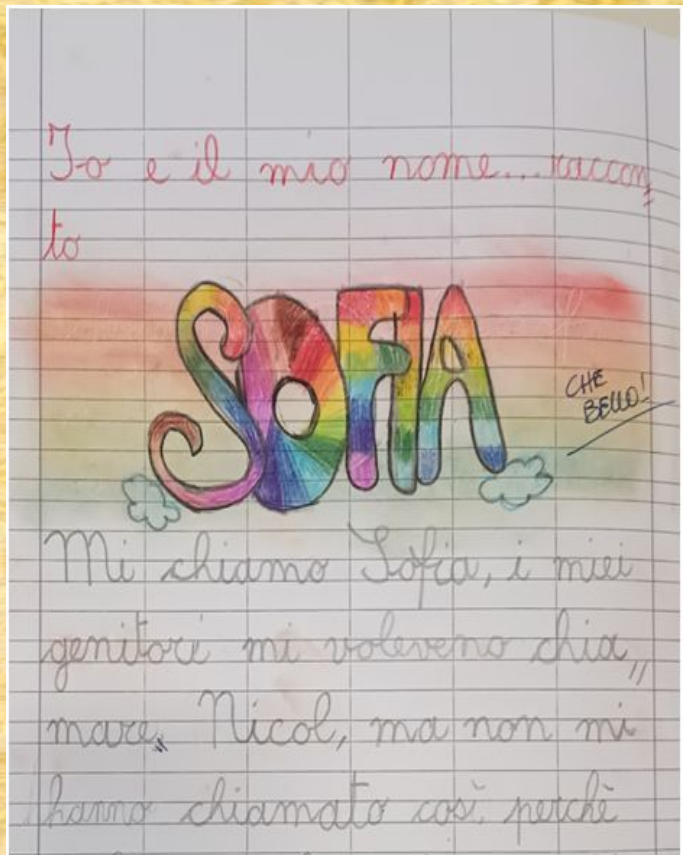 Io e il mio nome... raccon„
to
SOFIA
CHE
BELLO!
Mi chiamo Sofia, i miei
genitori mi voleveno chia„
mare, Nicol, ma non mi
hanno chiamato così perchè